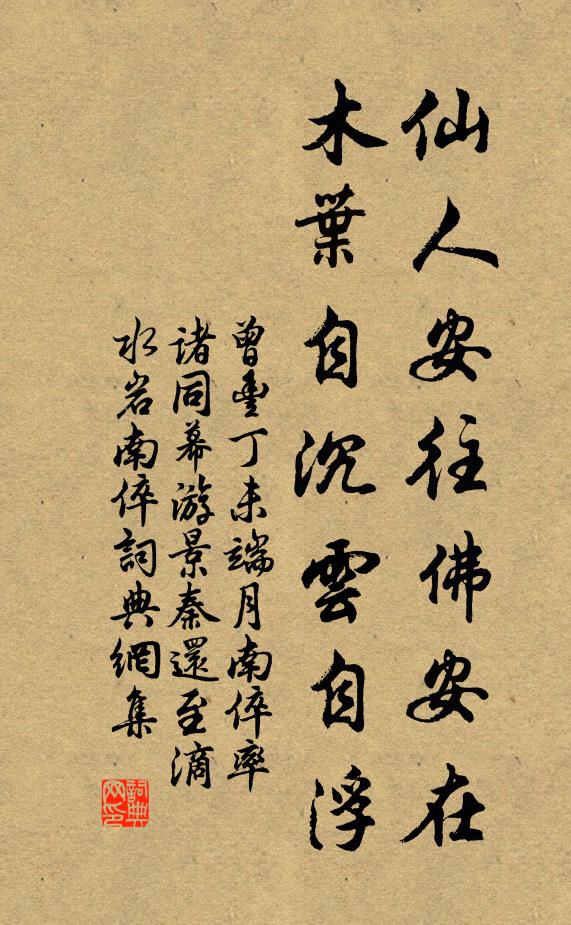 仙人安往佛安在
木葉自沉雲自浮
曾豊丁未端月南倅率
諸同幕游景秦還至滴
水岩南倅詞典網集
詞典
网印